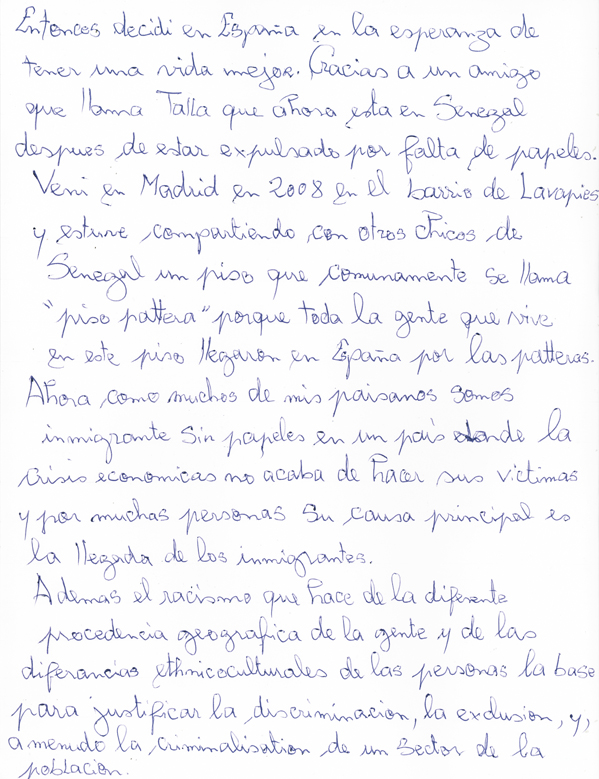 Entonces decidi en España en la esperanza de
tener una vida mejor. Gracias a un amigo
que llama Talla que ahora esta en Senegal
despues de estar expulsado por falta de papeles.
Veni en Madrid en 2008 en el barrio de Lavapies
y estuve compartiendo con otros chicos de
Senegal un piso que comunamente se llama
"piso pattera" porque toda la gente que vive
en este piso llegaron en España por las patteras.
Ahora como muchos de mis paisanos somos
inmigrante sin papeles en un pais donde la
crisis economicas no acaba de hacer sus victimas
y por muchas personas su causa principal es
la llegada de los inmigrantes.
Ademas el racismo que hace de la diferente
procedencia geografica de la gente y de las
diferancias ethnicoculturales de las personas la base
para justificar la discriminacion, la exclusion, y,
a menudo la criminalisation de un sector de la
poblacion.